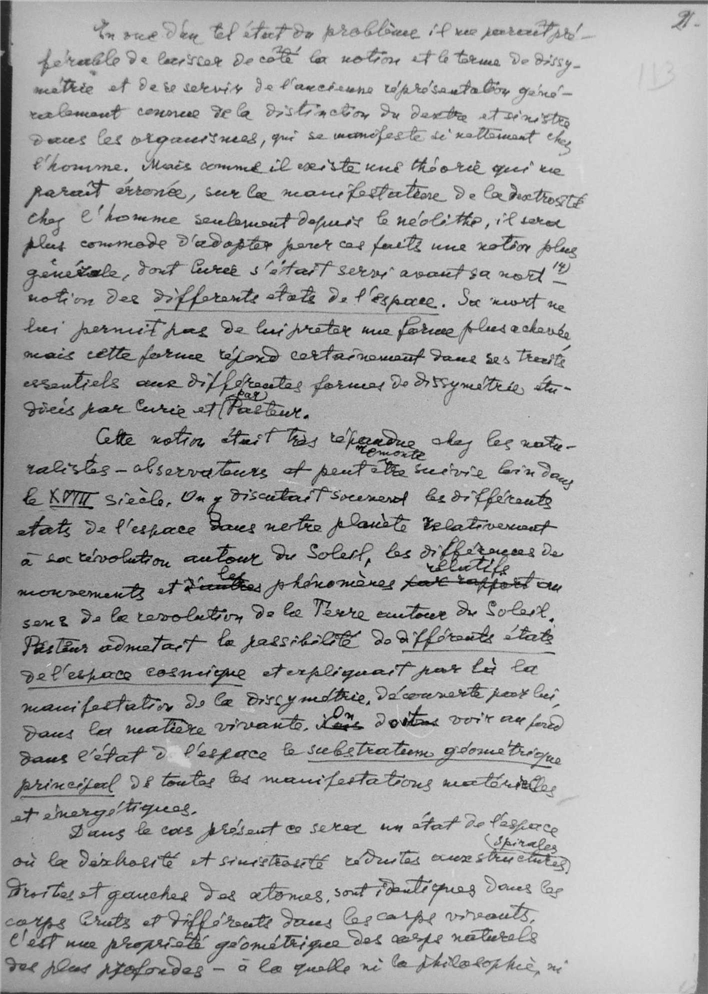 21.
113
En vue d'un tel état du problème il me parait pré-
férable de laisser de côté la notion et le terme de dissy-
métrie" et de se servir de l'ancienne réprésentation géné-
ralement connue de la distinction du dextre et sinistre
dans les organismes, qui se manifeste si nettement chez
l'homme. Mais comme il existe une théorie qui me
parait érronée, sur la manifestation de la dextrosité
chez l'homme seulement depuis le néolithe, il sera
plus commode d'adopter pour ces faits une notion plus
générale, dont Curie s'était servi avant sa mort 14) –
notion des differents états de l'éspace. Sa mort ne
lui permit pas de lui prêter une forme plus achevée
mais cette forme répond certainement dans ses traits
essentiels aux différentes formes de dissymétrie étu-
diées par Curie et (par) Pasteur.
Cette notion était très répandue chez les natu-
ralistes – observateurs et remonte loin dans
le XVIII siècle. On y discutait souvent les différents
états de l'éspace dans notre planète relativement
à sa révolution autour du Soleil, les différences de
mouvements et les phénomènes relatifs au
sens de la revolution de la Terre autour du Soleil.
Pasteur admetait la possibilité de différents états
de l'éspace cosmique et expliquait par là la
manifestation de la dissymétrie, découverte par lui,
dans la matière vivante. On doit voir au fond
dans l'état de l'éspace le substratum géométrique
principal de toutes les manifestations matérielles
et énergétiques.
Dans le cas présent ce sera un état de l'éspace
où la dextrosité et sinistrosité réduites aux structures (spirales)
droites et gauches des atomes, sont identiques dans les
corps bruts et différents dans les corps vivants.
C'est une propriété géométrique des corps naturels
des plus profondes – à la quelle ni la philosophie, ni